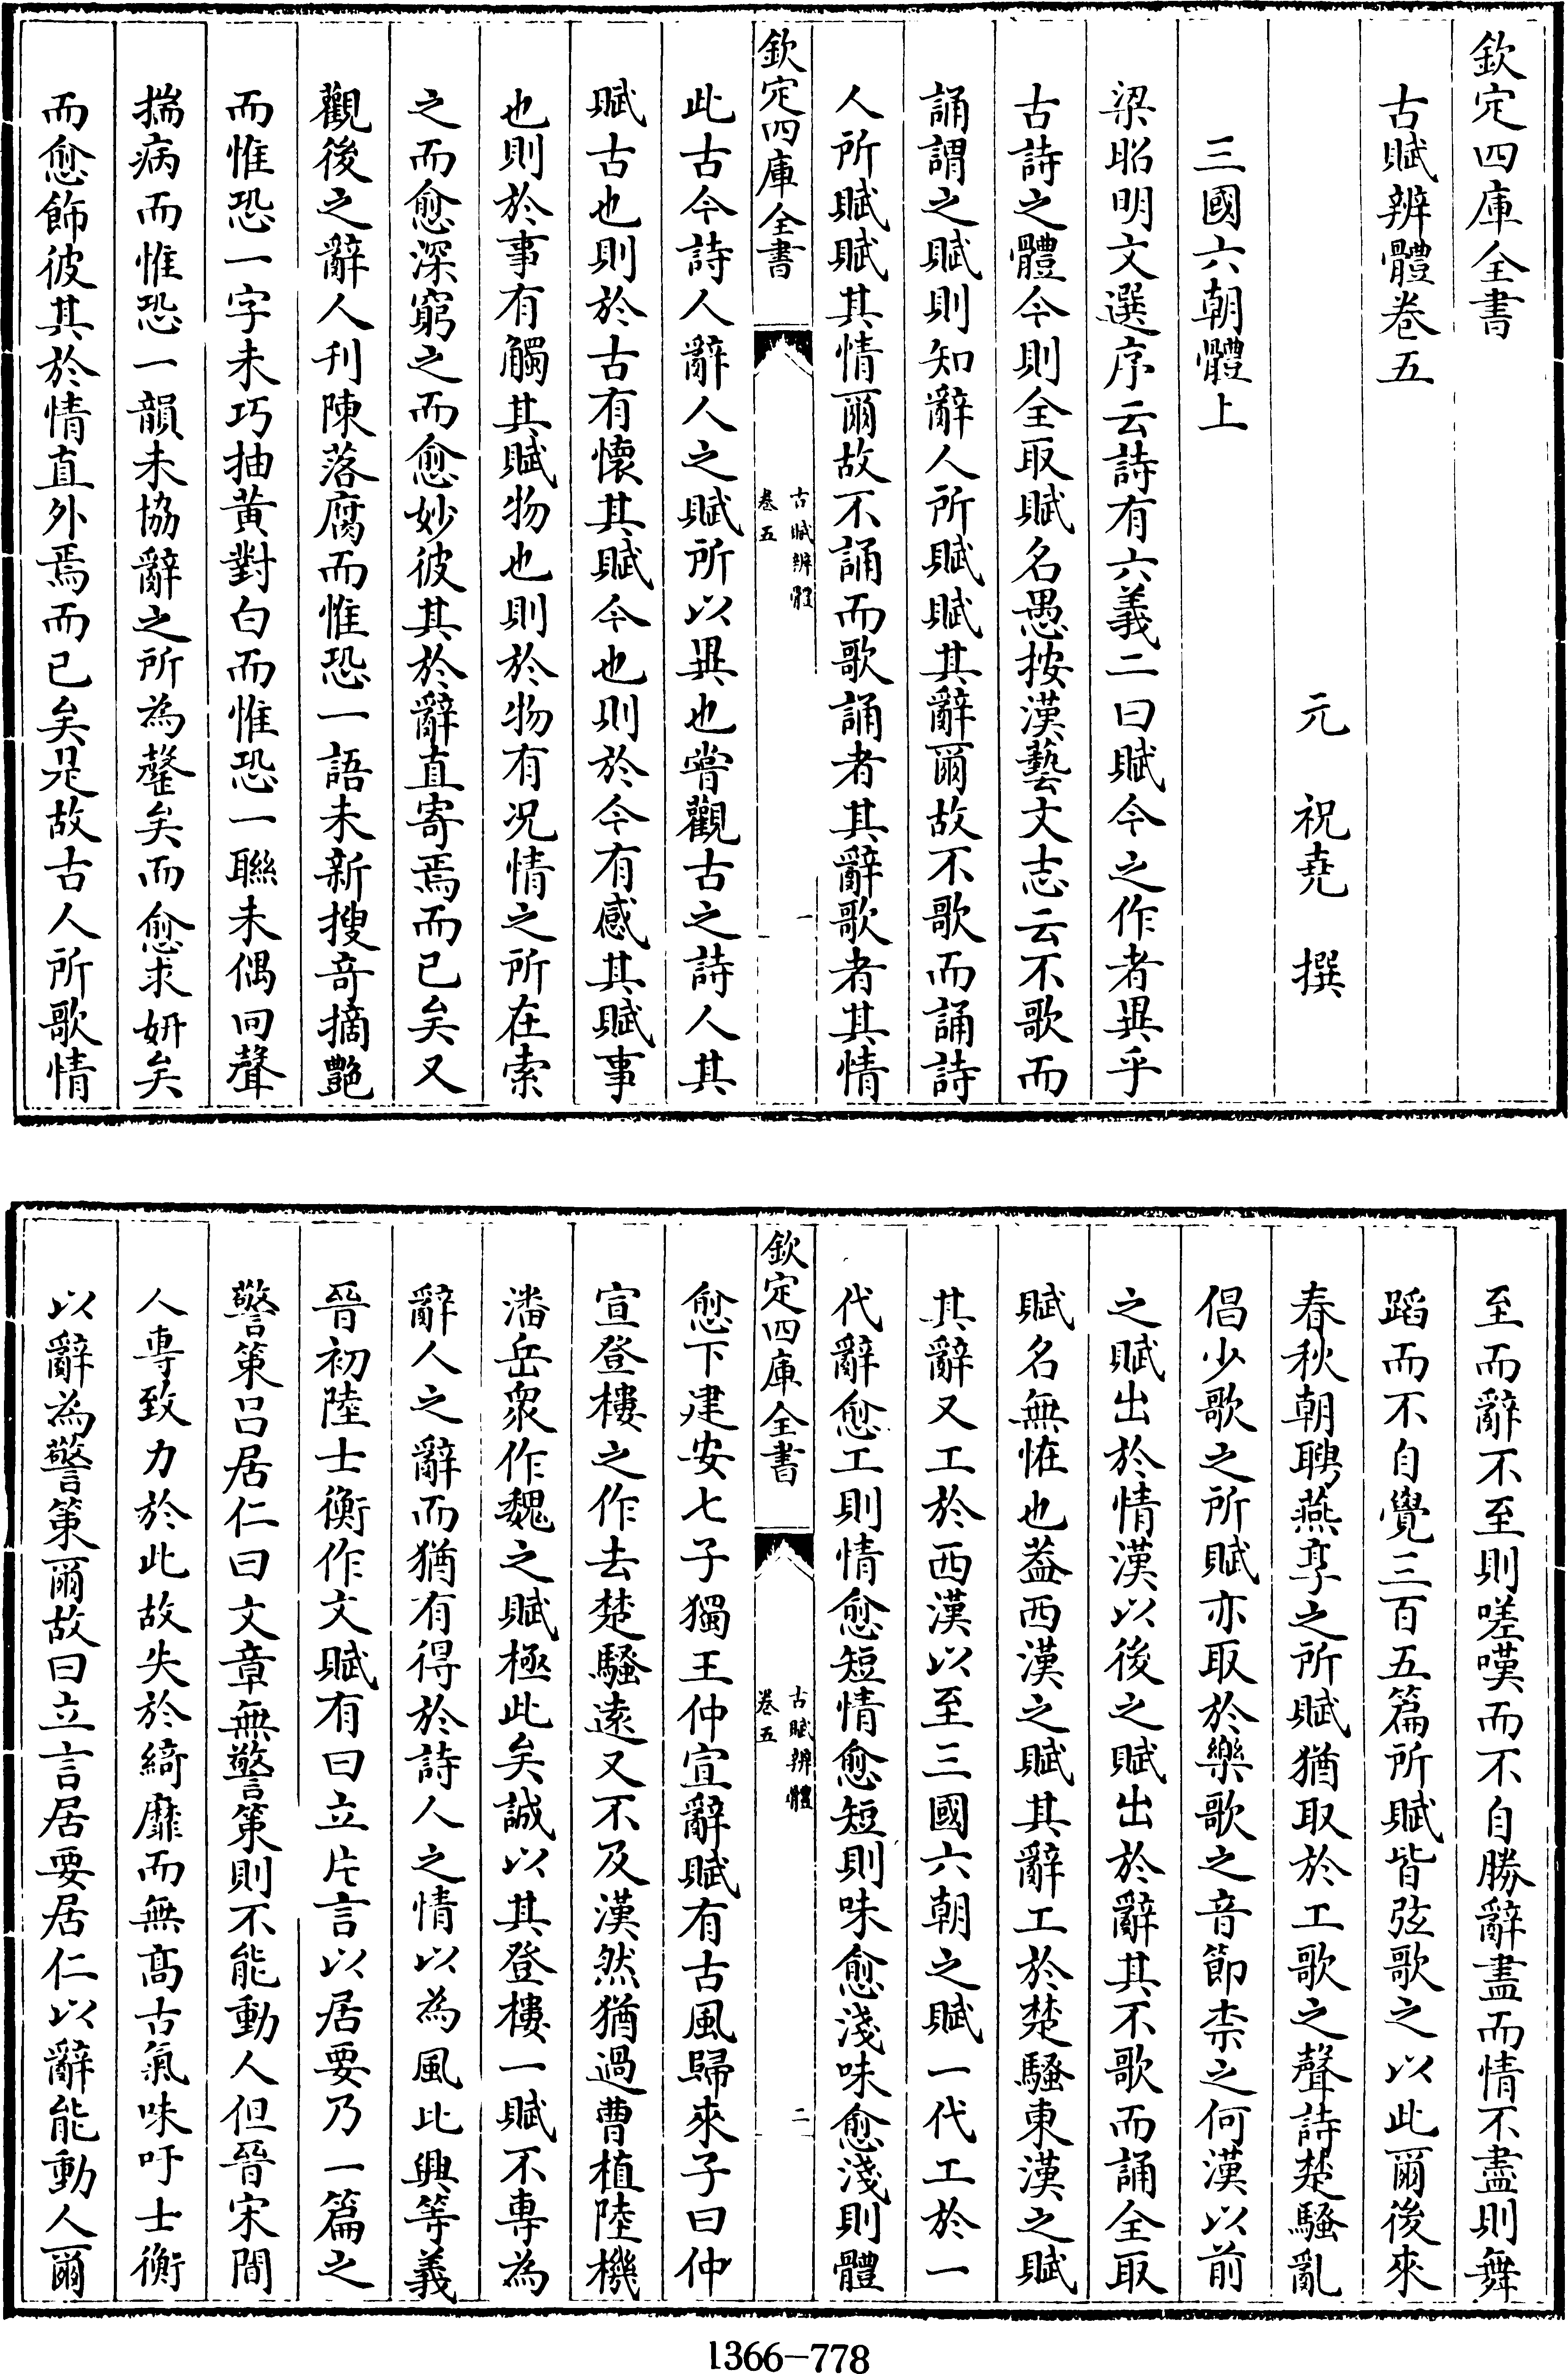 欽定四庫全書
古賦辨體卷五
元 祝堯 撰
三國六朝體上
梁昭明文選序云詩有六義二曰賦今之作者異乎
古詩之體今則全取賦名愚按漢藝文志云不歌而
誦謂之賦則知辭人所賦賦其辭爾故不歌而誦詩
人所賦賦其情爾故不誦而歌誦者其辭歌者其情
欽定四庫全書
古賦辨體
卷五
一
此古今詩人辭人之賦所以異也嘗觀古之詩人其
賦古也則於古有懷其賦今也則於今有感其賦事
也則於事有觸其賦物也則於物有况情之所在索
之而愈深窮之而愈妙彼其於辭直寄焉而已矣又
觀後之辭人刋陳落腐而惟恐一語未新搜竒摘艷
而惟恐一字未巧抽黃對白而惟恐一聯未偶囘聲
揣病而惟恐一韻未恊辭之所為罄矣而愈求妍矣
而愈飾彼其於情直外焉而已矣是故古人所歌情
至而辭不至則嗟嘆而不自勝辭盡而情不盡則舞
蹈而不自覺三百五篇所賦皆弦歌之以此爾後來
春秋朝聘燕享之所賦猶取於工歌之聲詩楚騷亂
倡少歌之所賦亦取於樂歌之音節柰之何漢以前
之賦出於情漢以後之賦出於辭其不歌而誦全取
賦名無恠也葢西漢之賦其辭工於楚騷東漢之賦
其辭又工於西漢以至三國六朝之賦一代工於一
代辭愈工則情愈短情愈短則味愈淺味愈淺則體
欽定四庫全書
古賦辨體
卷五
二
愈下建安七子獨王仲宣辭賦有古風歸來子曰仲
宣登樓之作去楚騷逺又不及漢然猶過曹植陸機
潘岳衆作魏之賦極此矣誠以其登樓一賦不專為
辭人之辭而猶有得於詩人之情以為風比興等義
晉初陸士衡作文賦有曰立片言以居要乃一篇之
警策吕居仁曰文章無警策則不能動人但晉宋間
人専致力於此故失於綺靡而無髙古氣味吁士衡
以辭為警策爾故曰立言居要居仁以辭能動人爾
1366-778